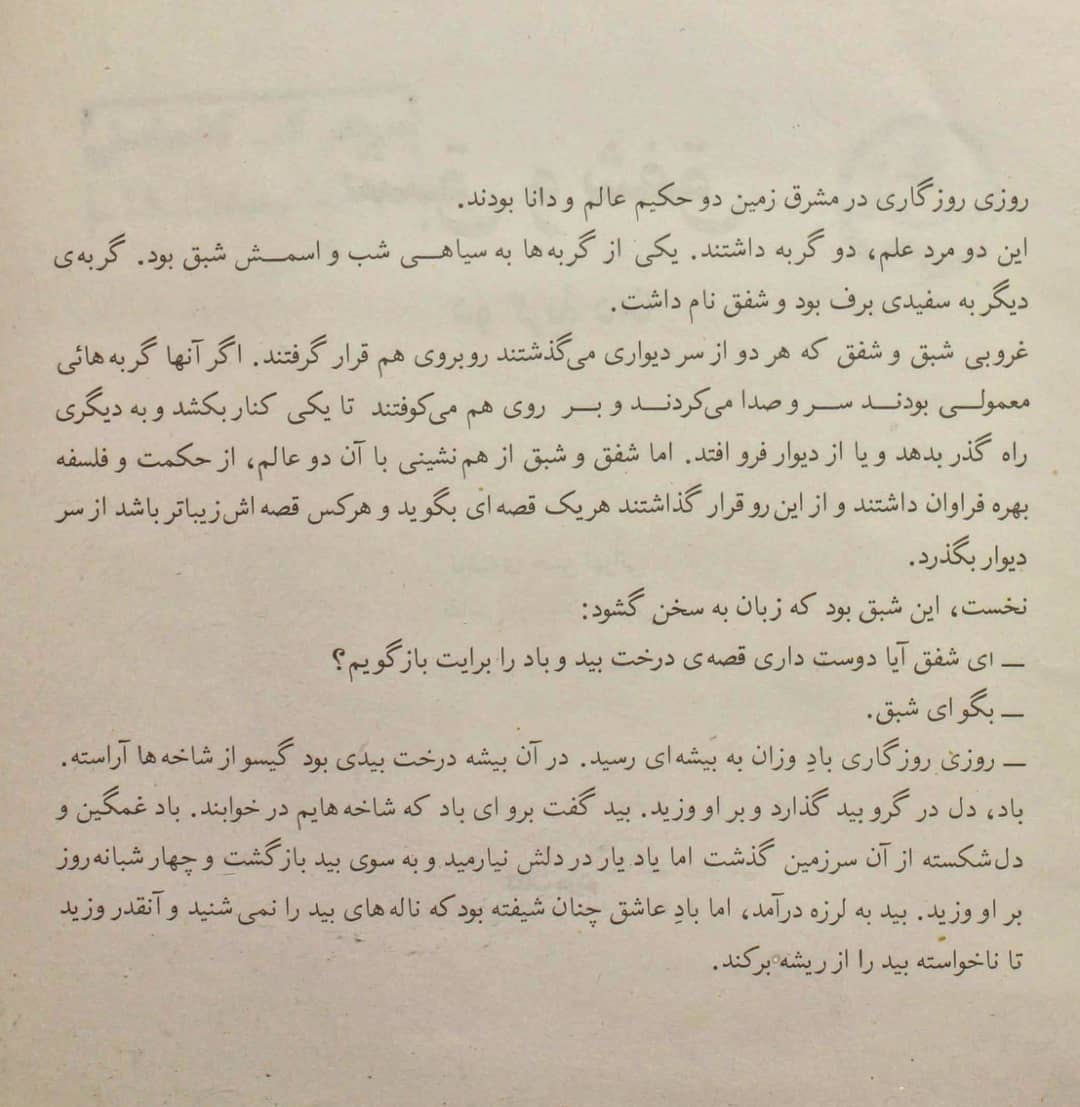 روزی روزگاری در مشرق زمین دو حکیم عالم و دانا بودند.
این دو مرد علم، دو گربه داشتند. یکی از گربه‌ها به سیاهی شب و اسمش شبق بود. گربه‌ی
دیگر به سفیدی برف بود و شفق نام داشت.
غروبی شبق و شفق که هر دو از سر دیواری می‌گذشتند روبروی هم قرار گرفتند. اگر آنها گربه‌هائی
معمولی بودند سر و صدا می‌کردند و بر روی هم می‌کوفتند تا یکی کنار بکشد و به دیگری
راه گذر بدهد و یا از دیوار فرو افتد. اما شفق و شبق از هم‌نشینی با آن دو عالم، از حکمت و فلسفه
بهره فراوان داشتند و از این رو قرار گذاشتند هر یک قصه‌ای بگوید و هرکس قصه‌اش زیباتر باشد از سر
دیوار بگذرد.
نخست، این شبق بود که زبان به سخن گشود:
— ای شفق آیا دوست داری قصه‌ی درخت بید و باد را برایت بازگویم؟
— بگو ای شبق.
— روزی روزگاری بادِ وزان به بیشه‌ای رسید. در آن بیشه درخت بیدی بود گیسو از شاخه‌ها آراسته.
باد، دل در گرو بید گذارد و بر او وزید. بید گفت برو ای باد که شاخه‌هایم در خوابند. باد غمگین و
دل‌شکسته از آن سرزمین گذشت اما یاد یار در دلش نیارمید و به سوی بید بازگشت و چهار شبانه‌روز
بر او وزید. بید به لرزه درآمد، اما بادِ عاشق چنان شیفته بود که ناله‌های بید را نمی‌شنید و آنقدر وزید
تا ناخواسته بید را از ریشه برکند.